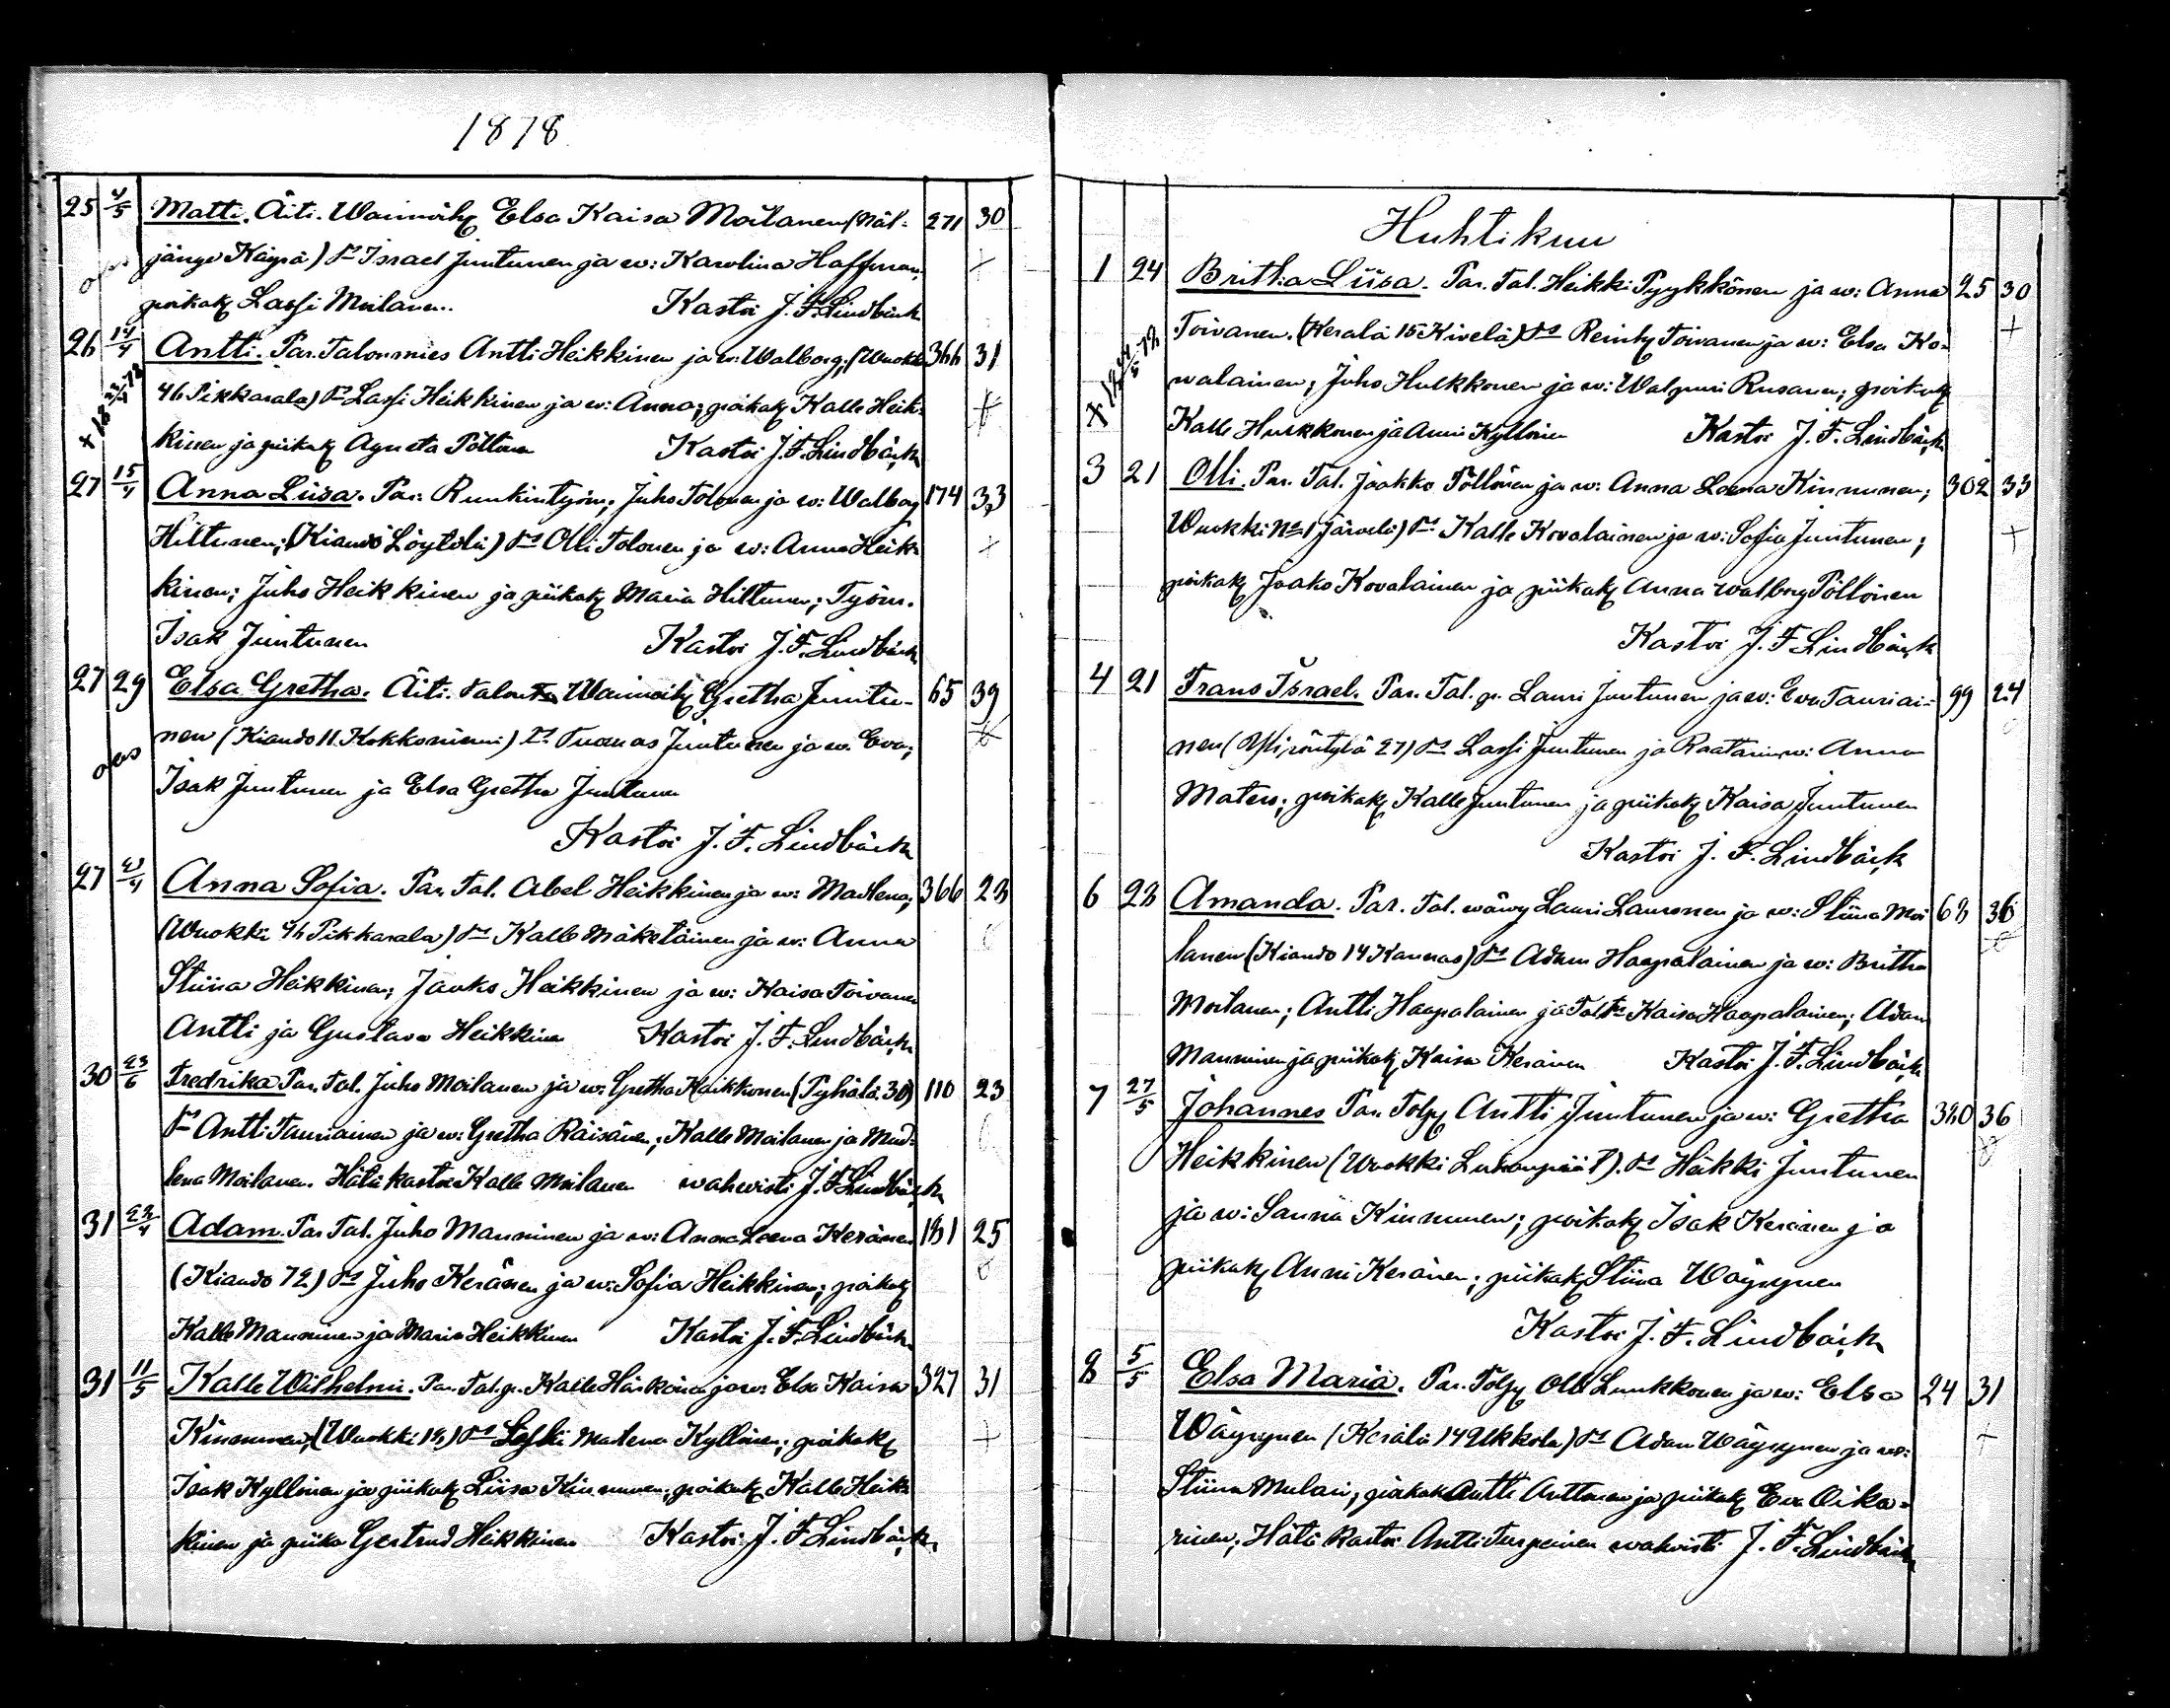 1878
25 4/5 Matti. Äiti. Waimoihʒ Elsa Kaisa Moilanen (Näl- 271 30
jänge Käyrä) Ts Israel Juntunen ja w: Karolina Hoffman,
poikakʒ Lassi Moilanen. Kastoi J. F. Lindbäck
26 14/4 Antti. Par. Talonmies Antti Heikkinen ja w: Walborg; (Wuokki 366 31
46 Pikkarala) Ts Lassi Heikkinen ja w: Anna; poikakʒ Kalle Heik-
kinen ja piikakʒ Agneta Pöllönen Kastoi J. F. Lindbäck
27 15/4 Anna Liisa. Par. Ruukintyöm; Juho Tolonen ja w: Walborg 174 33
Hiltunen; (Kiando Löytölä) Ts Olli Tolonen ja w: Anna Heik-
kinen; Juho Heikkinen ja piikakʒ Maria Hiltunen; Työm.
Isak Juntunen Kastoi J. F. Lindbäck
27 29 Elsa Gretha. Äiti. Talon Waimoihʒ Gretha Juntu- 65 39
nen (Kiando 11 Kokkoniemi) Ts Tuomas Juntunen ja w. Eva;
Isak Juntunen ja Elsa Gretha Juntunen
Kastoi J. F. Lindbäck
27 21/4 Anna Sofia. Par. Tal. Abel Heikkinen ja w: Madlena; 366 28
(Wuokki 46 Pikkarala) Ts Kalle Mäkeläinen ja w: Anna
Stiina Heikkinen; Jaako Heikkinen ja w: Kaisa Toivanen
Antti ja Gustava Heikkinen Kastoi J. F. Lindbäck
30 23/6 Fredrika Par. Tal. Juho Moilanen ja w: Gretha Kaikkonen (Pyhälä 30) 110 23
Ts Antti Tauriainen ja w: Gretha Räisänen; Kalle Moilanen ja Mad-
lena Moilanen. Hätä kastoi Kalle Moilanen wahwisti J. F. Lindbäck
31 28/4 Adam. Par. Tal. Juho Manninen ja w: Anna Leena Keränen 181 25
(Kiando 72) Ts Juho Keränen ja w: Sofia Heikkinen; poikakʒ
Kalle Manninen ja Maria Heikkinen Kastoi J. F. Lindbäck
31 11/5 Kalle Wilhelmi. Par. Tal. p. Kalle Härkönen ja w: Elsa Kaisa 327 31
Kinnunen; (Wuokki 18) Ts Madlena Kyllönen; poikakʒ
Isak Kyllönen ja piikakʒ Liisa Kinnunen; poikakʒ Kalle Heik-
kinen ja piika Gertrud Heikkinen Kastoi J. F. Lindbäck
Huhtikuu
1 24 Britha Liisa. Par. Tal. Heikki Pyykkönen ja w: Anna 25 30
Toivanen. (Kerälä 15 Kivelä) Ts Reinhʒ Toivanen ja w: Elsa Ko-
walainen; Juho Hulkkonen ja w: Walpuri Rusanen; poikakʒ
Kalle Hulkkonen ja Anni Kyllönen Kastoi J. F. Lindbäck
3 21 Olli. Par. Tal. Jaakko Pöllönen ja w: Anna Leena Kinnunen; 302 33
Wuokki No 1 Järvelä) Ts Kalle Kovalainen ja w: Sofia Juntunen;
poikakʒ Jaako Kovalainen ja piikakʒ Anna Walborg Pöllönen
Kastoi J. F. Lindbäck
4 21 Frans Israel. Par. Tal. p. Lauri Juntunen ja w: Eva Tauriai- 99 24
nen ( 27) Ts Lassi Juntunen ja w: Anna
Matero; poikakʒ Kalle Juntunen ja piikakʒ Kaisa Juntunen
Kastoi J. F. Lindbäck
6 28 Amanda. Par. Tal. wäwy Lauri Lauronen ja w: Stiina Moi 68 36
lanen (Kiando 14 Kannas) Ts Adam Haapalainen ja w: Britha
Moilanen; Antti Haapalainen ja Kaisa Haapalainen; Adam
Manninen ja piikakʒ Kaisa Keränen Kastoi J. F. Lindbäck
7 27/5 Johannes Par. Tolpʒ Antti Juntunen ja w: Gretha 380 36
Heikkinen (Wuokki ) Ts Heikki Juntunen
ja w: Sanna Kinnunen; poikakʒ Isak Keränen ja
piikakʒ Anni Keränen; piikakʒ Stiina Wäyrynen
Kastoi J. F. Lindbäck
8 5/5 Elsa Maria. Par. Tolpʒ Olli Luukkonen ja w: Elsa 24 31
Wäyrynen (Kerälä 14 Ukkola) Ts Adam Wäyrynen ja w:
Stiina Mulari; poikakʒ Antti Anttonen ja piikakʒ Eva Oika-
rinen; Hätä kastoi Antti Turpeinen wahvisti J. F. Lindbäck